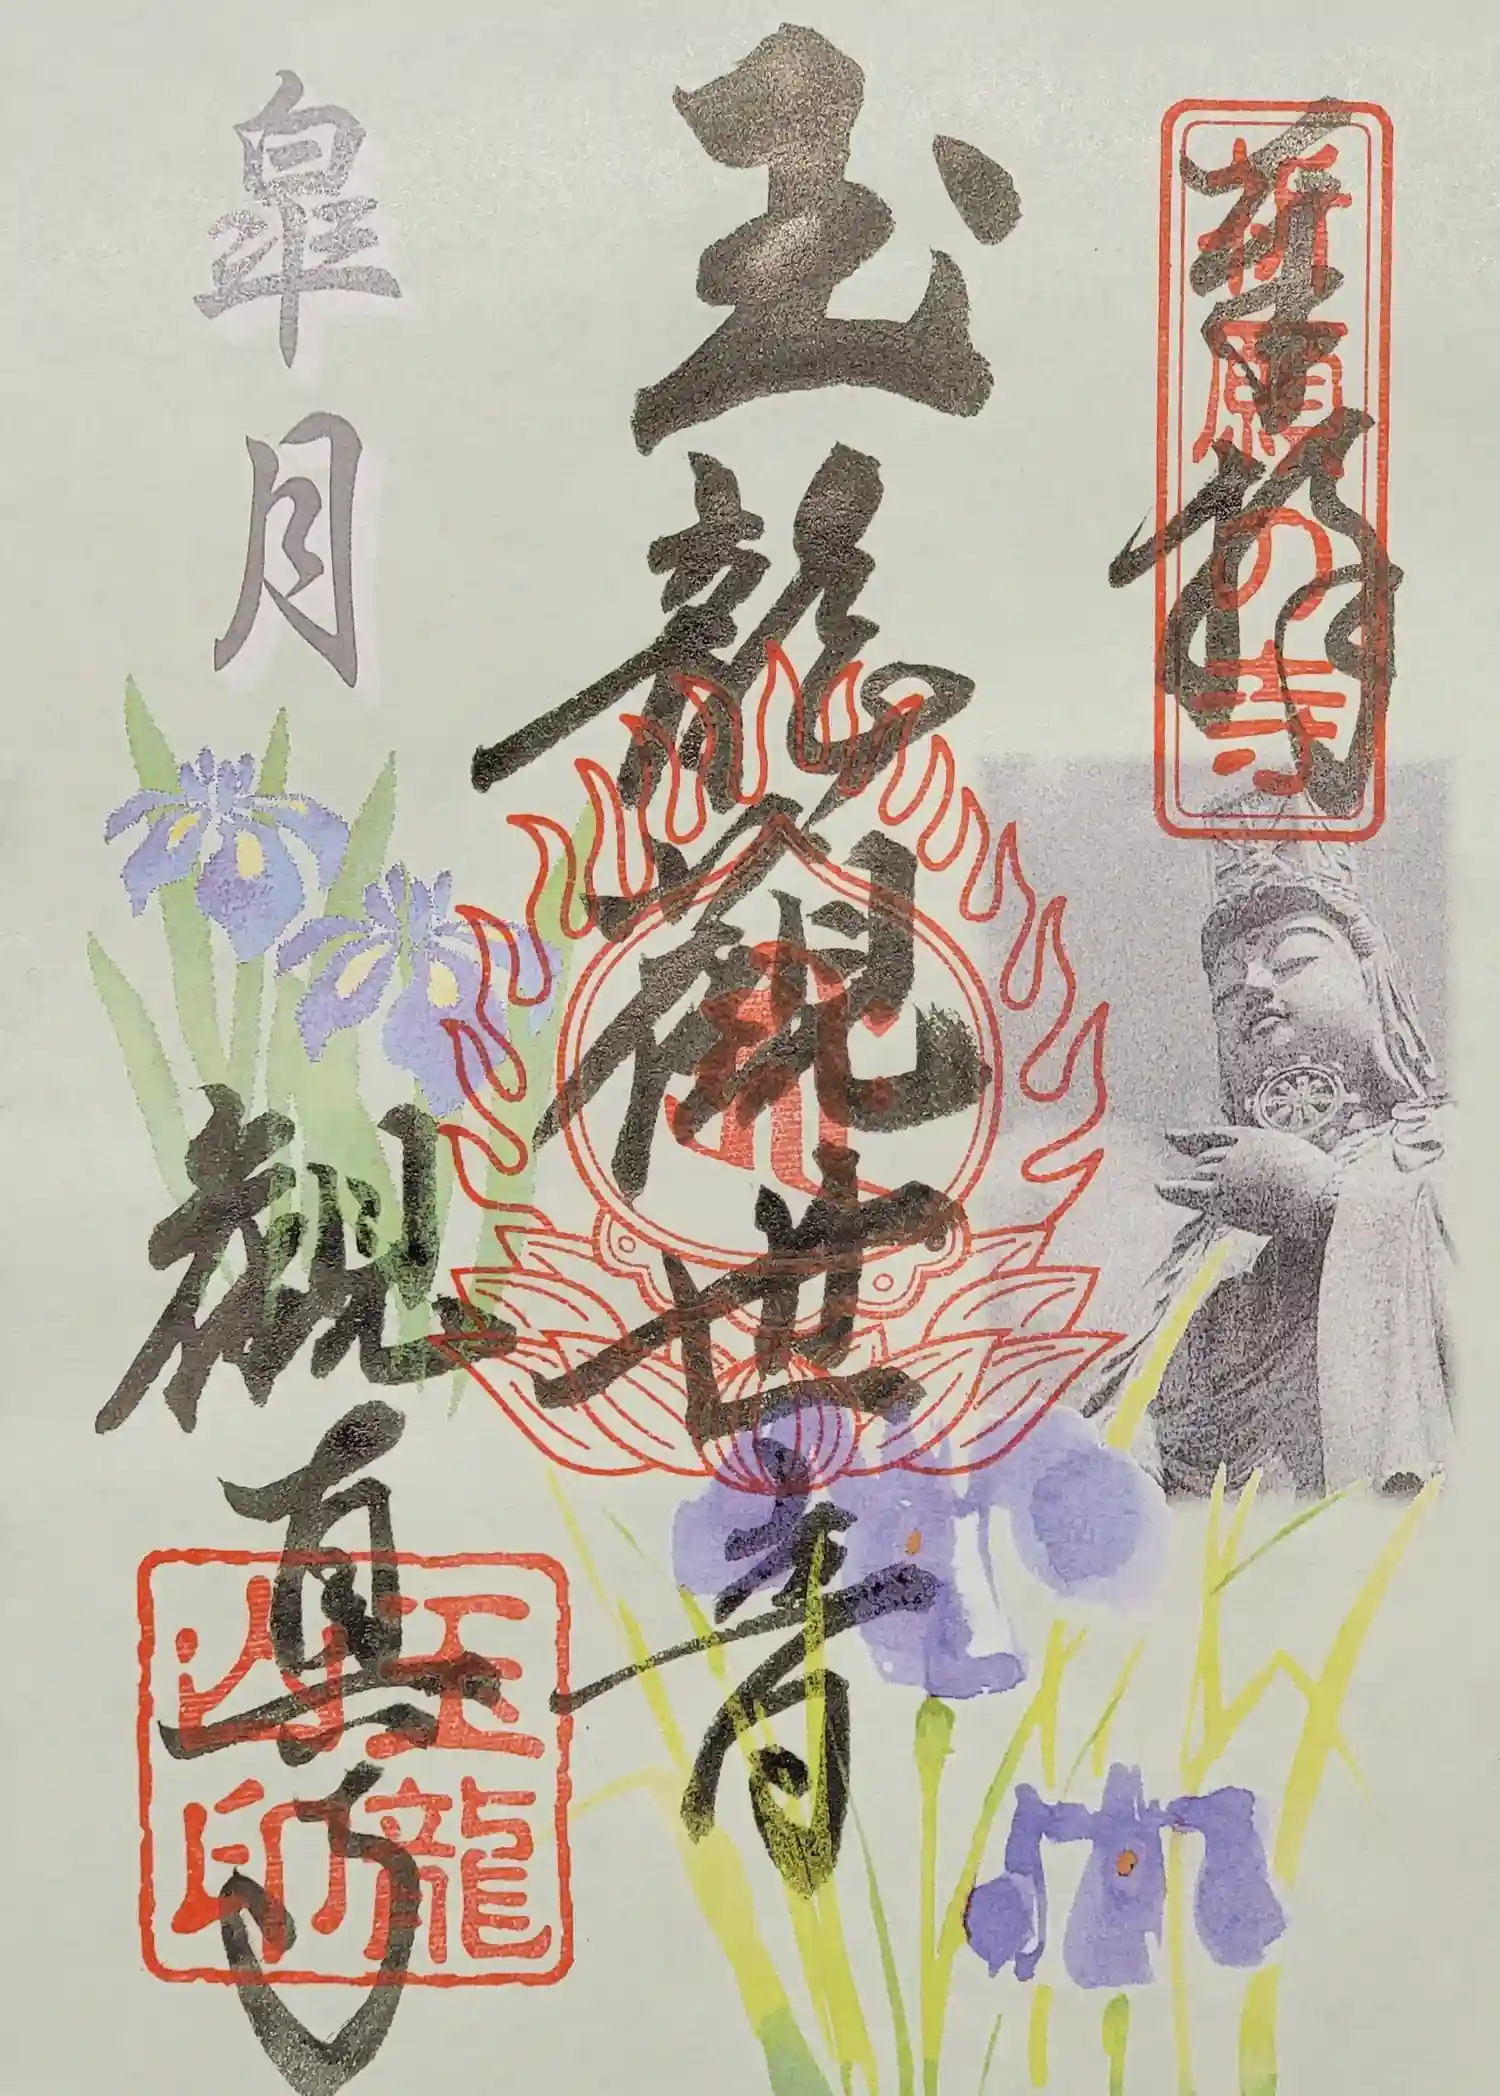 奉拝
祈願の寺
玉龍観世音
皐月
観真寺
玉龍
山印